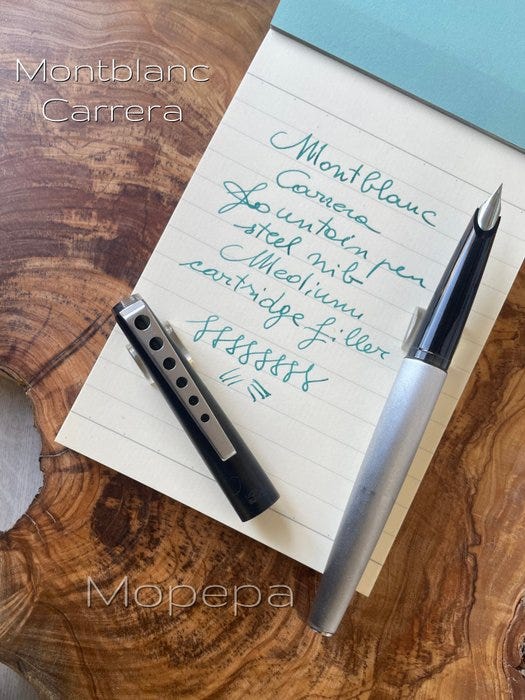 Montblanc
Carrera
Montblanc
Carrera
fountain pen
steel nib
Medium
cartridge filler
Mopepa